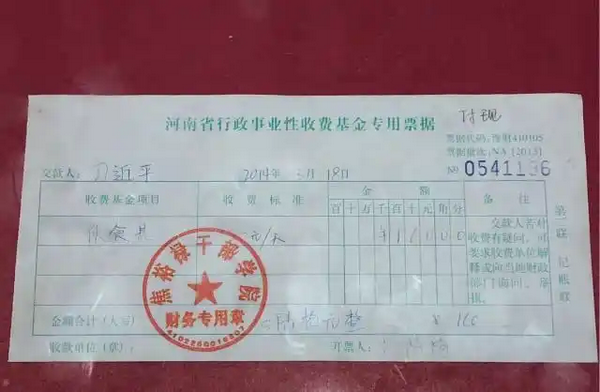 河南省行政事业性收费基金专用票据
付现
票据代码:豫财410105
票据批次:NA[2013]
交款人: 习近平 2014年 3月 18日
№ 0541136
收费基金项目 收费标准 金额 备注
百十万千百十元角分
伙食费 元/天 ¥16000
交款人若对收费有疑问,可要求收费单位解释或向当地财政部门询问、举报。
第一联 记账联
焦裕禄干部学院
财务专用章
金额合计(大写) 陆拾元整 ¥160
收款单位(章): 开票人: